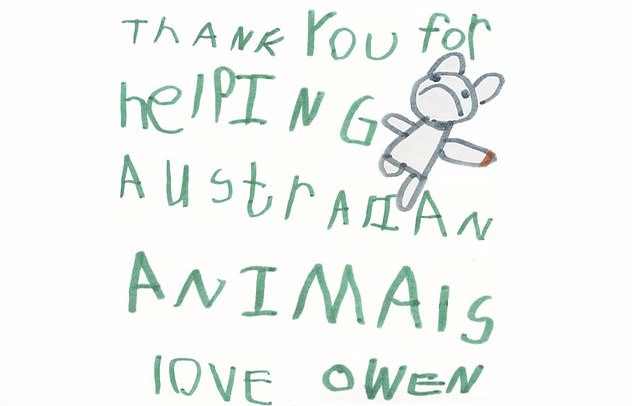 THANK YOU for
helPING
AUstrAlIAN
ANIMAlS
lOVE OWEN